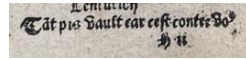 Lentulich
Tāt pis vault car cest contre vo⁹
H ii